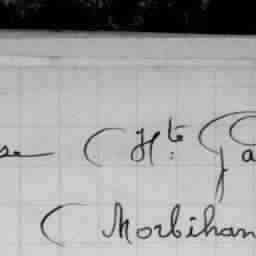 se ( Hte Ga
( Morbihan